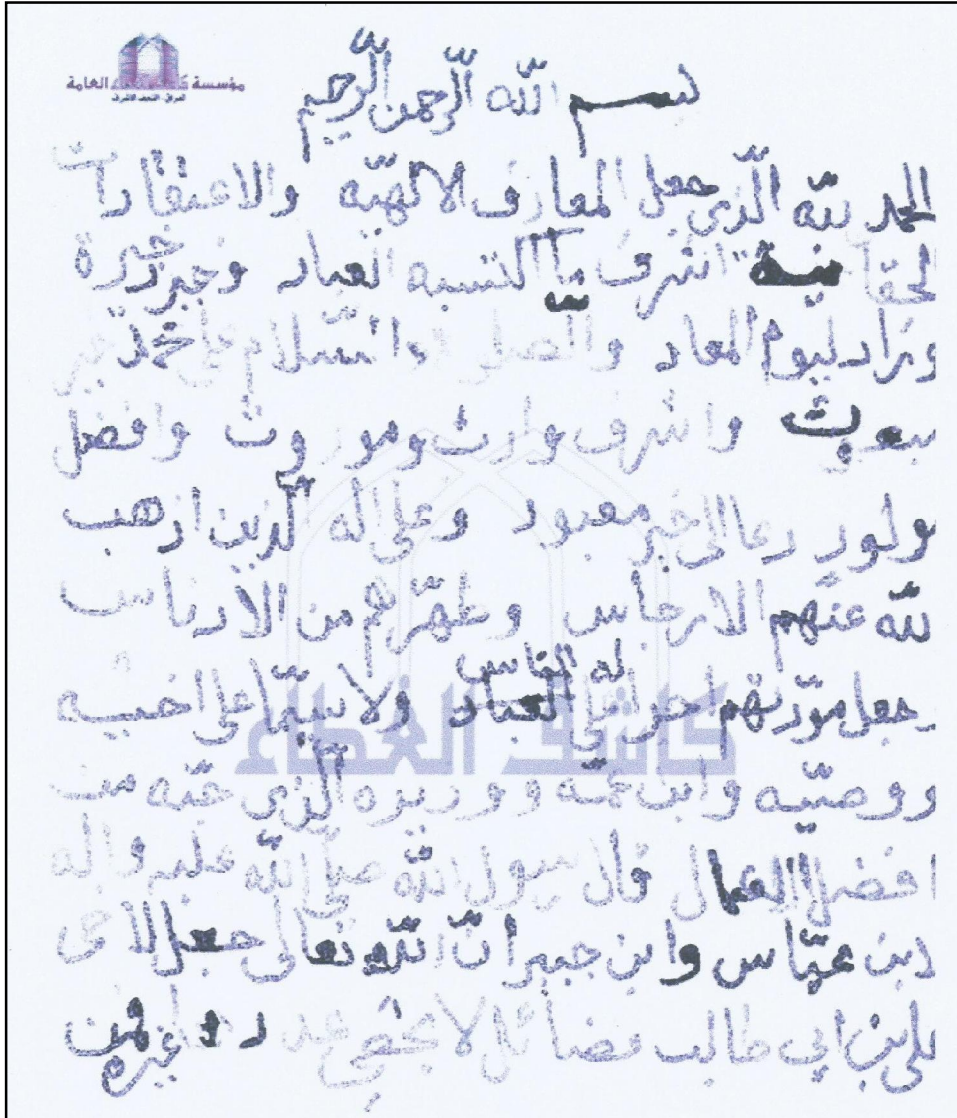 مؤسسة كاشف الغطاء العامة
بسم الله الرحمن الرحيم
الحمد لله الذي جعل المعارف الالهيه والاعتقادات
لحقانية اشرف ما اكتسبه العباد وخير ذخيرة
وزاد ليوم المعاد والصلوة والسلام على محمد خير
مبعوث واشرف وارث وموروث وافضل
مولود دعا الى خير معبود وعلى اله الذين اذهب
لله عنهم الارجاس وطهرهم من الادناس
جعل مودتهم على العباد ولا سيما على اخيه
له الناس
ووصيه وابن عمه ووزيره الذي حبه من
افضل الاعمال قال رسول الله صلى الله عليه واله
لابن عباس وابن جبير ان الله تعالى جعل لاخى
على بن ابي طالب فضائل لا يحصى عددها غيره فمن
كاشف الغطاء